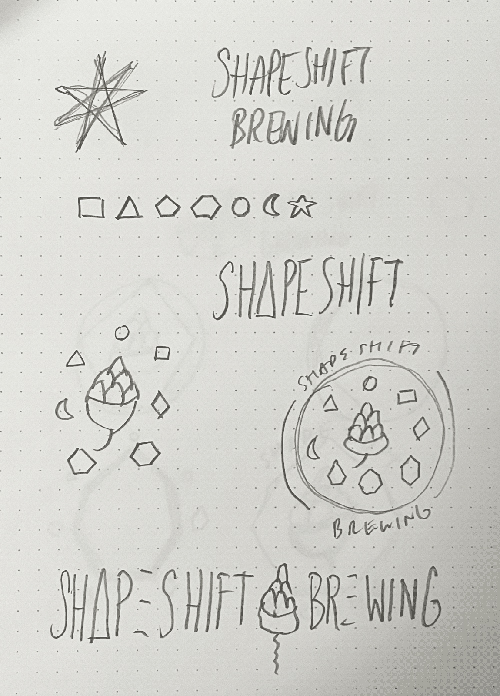 SHAPESHIFT
BREWING
SHAPESHIFT
SHAPE SHIFT
BREWING
SHAPE SHIFT BREWING